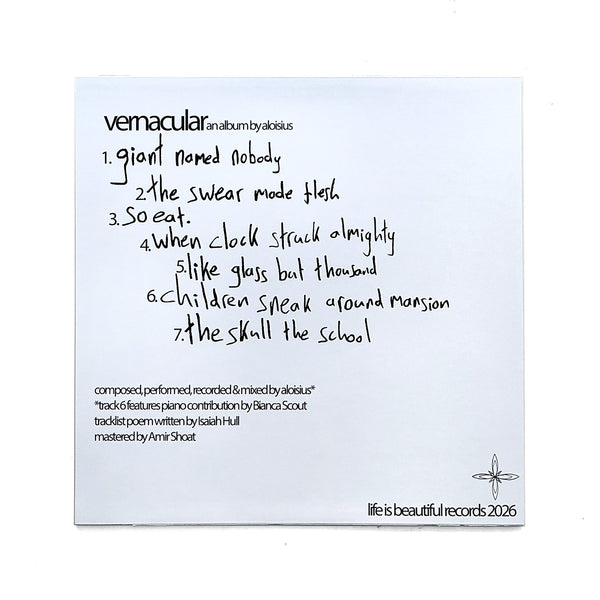 vernacular an album by aloisius
1. giant named nobody
2. the swear made flesh
3. so eat.
4. when clock struck almighty
5. like glass but thousand
6. children sneak around mansion
7. the skull the school
composed, performed, recorded & mixed by aloisius*
*track 6 features piano contribution by Bianca Scout
tracklist poem written by Isaiah Hull
mastered by Amir Shoat
life is beautiful records 2026